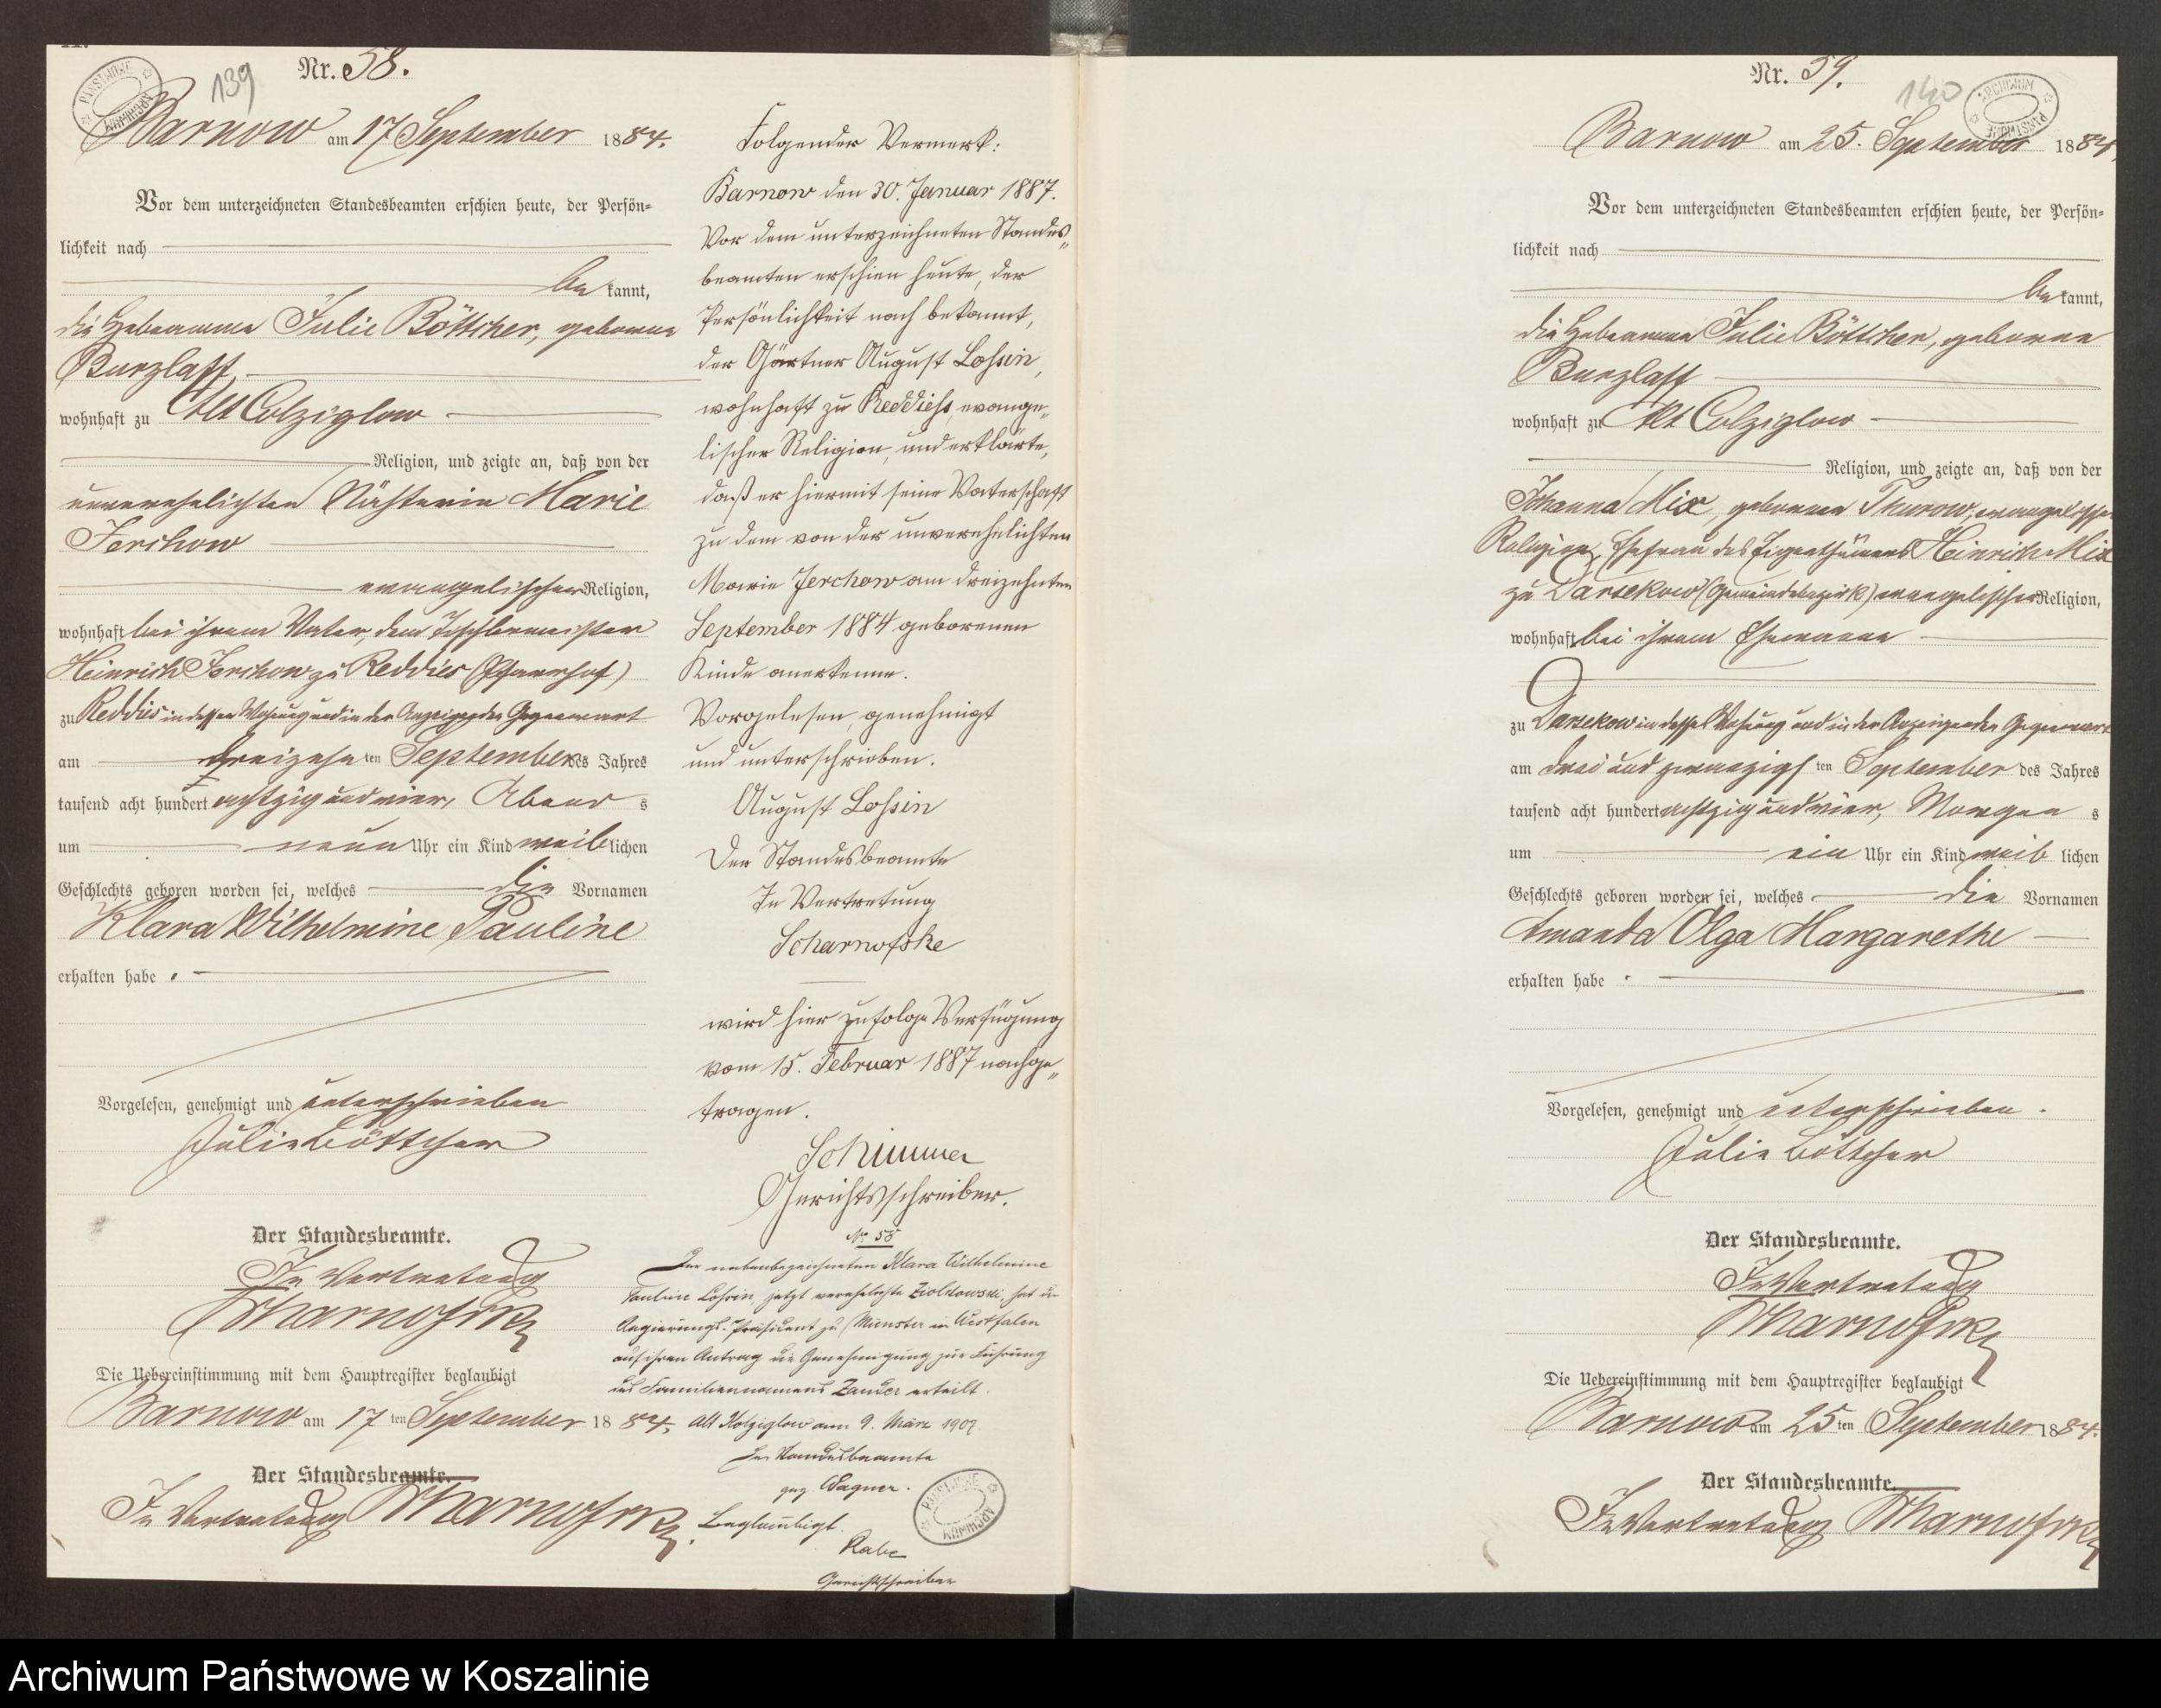 139
Nr. 58.
Barnow am 17 September 1884.
Vor dem unterzeichneten Standesbeamten erschien heute, der Persön=
lichkeit nach
be kannt,
die Hebeamme Julie Böttcher, geborene
Burzlaff
wohnhaft zu Alt Colziglow
Religion, und zeigte an, daß von der
unverehelichten Nähterin Marie
Jerchow
evangelischer Religion,
wohnhaft bei ihrem Vater, dem Tischlermeister
Heinrich Jerchow zu Reddies (Pfarrhof)
zu Reddies in dessen Wohnung und in der Anzeigenden Gegenwart
am dreizehn ten September des Jahres
tausend acht hundert achtzig und vier, Abend s
um neun Uhr ein Kind weib lichen
Geschlechts geboren worden sei, welches die Vornamen
Klara Wilhelmine Pauline
erhalten habe.
Vorgelesen, genehmigt und unterschrieben
Julie Böttcher
Der Standesbeamte.
In Vertretung
Scharnofske
Die Uebereinstimmung mit dem Hauptregister beglaubigt
Barnow am 17 ten September 1884.
Der Standesbeamte.
In Vertretung Scharnofske
Folgender Vermerk:
Barnow den 30. Januar 1887.
Vor dem unterzeichneten Standes„
beamten erschien heute, der
Persönlichkeit nach bekannt,
der Gärtner August Lossin,
wohnhaft zu Reddiess, evange„
lischer Religion, und erklärte,
daß er hiermit seine Vaterschaft
zu dem von der unverehelichten
Marie Jerchow am dreizehnten
September 1884 geborenen
Kinde anerkenne.
Vorgelesen, genehmigt
und unterschrieben.
August Lossin
Der Standesbeamte
In Vertretung
Scharnofske
wird hier zufolge Verfügung
vom 15. Februar 1887 nachge„
tragen.
Schimmer
Gerichtsschreiber.
No 58
Der nebenbezeichneten Klara Wilhelmine
Pauline Lossin, jetzt verehelichte Ziolkowski, hat der
Regierungs-Präsident zu Münster in Westfalen
auf ihren Antrag die Genehmigung zur Führung
des Familiennamens Zander erteilt.
Alt Kolziglow am 9. März 1907
Der Standesbeamte
gez. Wagner.
Beglaubigt.
Rabe
Gerichtsschreiber
ARCHIWUM PAŃSTWOWE
140
Nr. 59.
Barnow am 25. September 1884.
Vor dem unterzeichneten Standesbeamten erschien heute, der Persön=
lichkeit nach
be kannt,
die Hebeamme Julie Böttcher, geborene
Burzlaff
wohnhaft zu Alt Colziglow
Religion, und zeigte an, daß von der
Johanna Mix, geborenen Thurow, evangelischer
Religion, Ehefrau des Eigenthümers Heinrich Mix
zu Darsekow (Gemeindebezirk) evangelischer Religion,
wohnhaft bei ihrem Ehemanne
zu Darsekow in dessen Wohnung und in der Anzeigenden Gegenwart
am drei und zwanzigs ten September des Jahres
tausend acht hundert achtzig und vier, Morgen s
um ein Uhr ein Kind weib lichen
Geschlechts geboren worden sei, welches die Vornamen
Amanda Olga Margarethe
erhalten habe.
Vorgelesen, genehmigt und unterschrieben.
Julie Böttcher
Der Standesbeamte.
In Vertretung
Scharnofske
Die Uebereinstimmung mit dem Hauptregister beglaubigt
Barnow am 25 ten September 1884.
Der Standesbeamte.
In Vertretung Scharnofske
ARCHIWUM PAŃSTWOWE
Archiwum Państwowe w Koszalinie